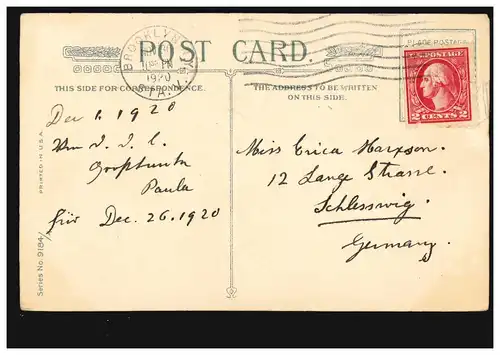 POST CARD.
THIS SIDE FOR CORRESPONDENCE.
THE ADDRESS TO BE WRITTEN
ON THIS SIDE.
BROOKLYN
PM
1920
STA.
PLACE POSTAGE
U.S. POSTAGE
2 CENTS 2
Dec 1. 1920
Von D. l.
Großtante
Paula
für Dec. 26. 1920
Miss Erica Harxsen.
12 Lange Strasse.
Schlesswig.
Germany.
PRINTED IN U.S.A.
Series No. 9184